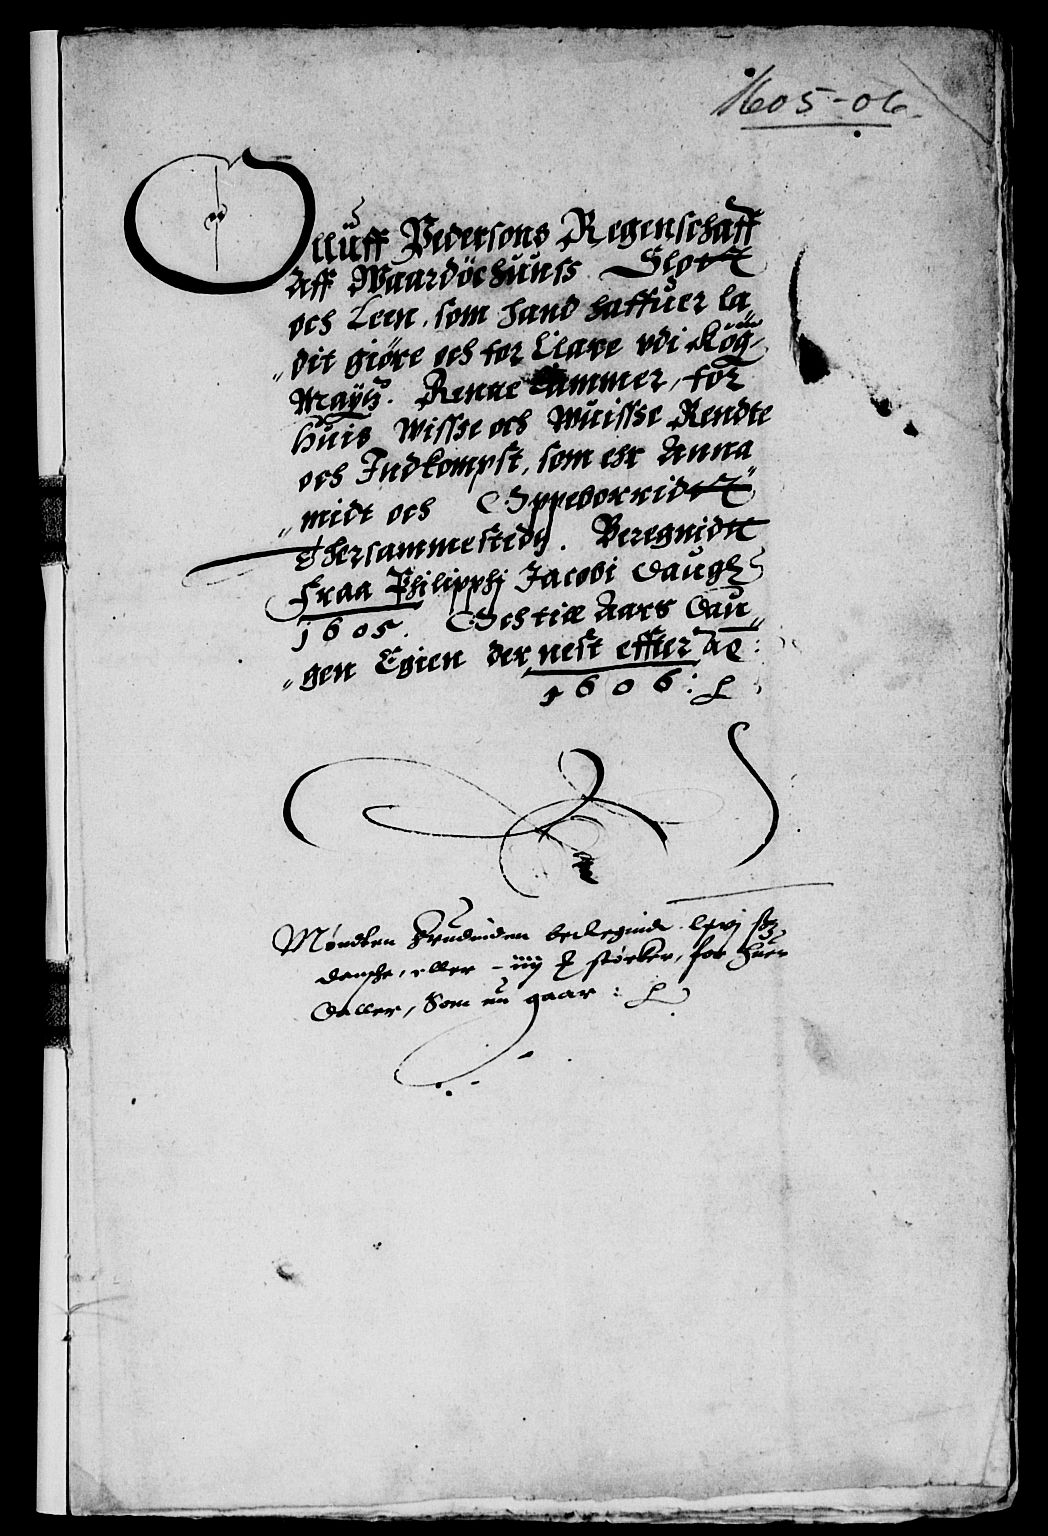 1605-06.
Olluff Pedersons Regenschaff
Aff Waardöehuuss Slott
och Leen, som hand haffuer la
dit giöre och for Clare vdi Kög
Mayts. Renne Cammer, for
huis Wisse och Wuisse Rendte
och Indkompst, som ehr Anna
midt och Oppeborridtt
Thersammestedtz. Beregnidtt
fraa Philipphj Jacobi Daugh
1605. Och till Aars Dau
gen Egien der nest effter Ao:
1606:
Møndten huudinden beregnidt lxvj sk
danske, eller iiij støcker, for huer
Daller, Som nu gaar: